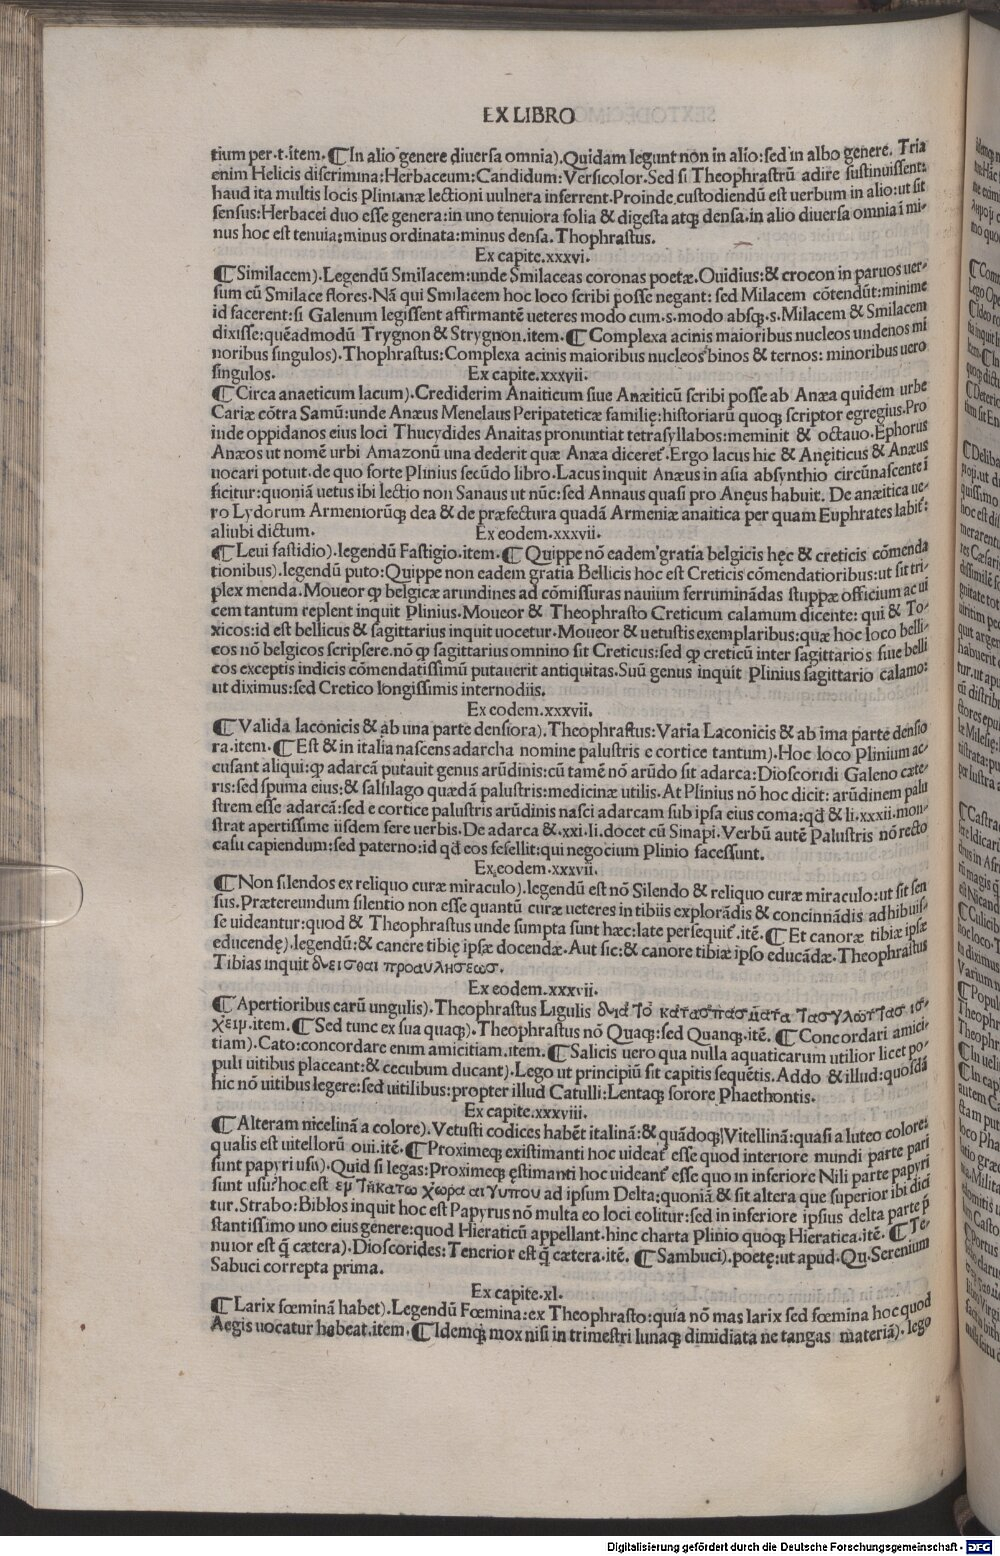 EX LIBRO
tium per.t.item. ¶In alio genere diuersa omnia). Quidam legunt non in alio: sed in albo genere. Tria
enim Helicis discrimina: Herbaceum: Candidum: Versicolor. Sed si Theophrastrũ adire sustinuissent:
haud ita multis locis Plinianæ lectioni uulnera inferrent. Proinde custodiendũ est uerbum in alio: ut sit
sensus: Herbacei duo esse genera: in uno tenuiora folia & digesta atq; densa. in alio diuersa omnia ĩ mi-
nus hoc est tenuia: minus ordinata: minus densa. Thophrastus.
Ex capite.xxxvi.
¶Similacem). Legendũ Smilacem: unde Smilaceas coronas poetæ. Ouidius: & crocon in paruos uer-
sum cũ Smilace flores. Nã qui Smilacem hoc loco scribi posse negant: sed Milacem cõtendũt: minime
id facerent: si Galenum legissent affirmantẽ ueteres modo cum.s. modo absq;.s. Milacem & Smilacem
dixisse: quẽadmodũ Trygnon & Strygnon. item. ¶Complexa acinis maioribus nucleos undenos mi
noribus singulos). Thophrastus: Complexa acinis maioribus nucleos binos & ternos: minoribus uero
singulos.
Ex capite.xxxvii.
¶Circa anaeticum lacum). Crediderim Anaiticum siue Anæiticũ scribi posse ab Anæa quidem urbe
Cariæ cõtra Samũ: unde Anæus Menelaus Peripateticæ familię: historiarũ quoq; scriptor egregius. Pro
inde oppidanos eius loci Thucydides Anaitas pronuntiat tetrasyllabos: meminit & octauo. Ephorus
Anæos ut nomẽ urbi Amazonũ una dederit quæ Anæa diceret̃. Ergo lacus hic & Anęiticus & Anæus
uocari potuit. de quo forte Plinius secũdo libro. Lacus inquit Anæus in asia absynthio circũnascente ĩ
ficitur: quoniã uetus ibi lectio non Sanaus ut nũc: sed Annaus quasi pro Anęus habuit. De anæitica ue-
ro Lydorum Armeniorũq; dea & de præfectura quadã Armeniæ anaitica per quam Euphrates labit̃:
aliubi dictum.
Ex eodem.xxxvii.
¶Leui fastidio). legendũ Fastigio. item. ¶Quippe nõ eadem gratia belgicis hęc & creticis cõmenda
tionibus). legendũ puto: Quippe non eadem gratia Bellicis hoc est Creticis cõmendatioribus: ut sit tri-
plex menda. Moueor ꝙ belgicæ arundines ad cõmissuras nauium ferruminãdas stuppæ officium ac ui
cem tantum replent inquit Plinius. Moueor & Theophrasto Creticum calamum dicente: qui & To-
xicos: id est bellicus & sagittarius inquit uocetur. Moueor & uetustis exemplaribus: quæ hoc loco belli-
cos nõ belgicos scripsere. nõ ꝙ sagittarius omnino sit Creticus: sed ꝙ creticũ inter sagittarios siue belli
cos exceptis indicis cõmendatissimũ putauerit antiquitas. Suũ genus inquit Plinius sagittario calamo:
ut diximus: sed Cretico longissimis internodiis.
Ex eodem.xxxvii.
¶Valida laconicis & ab una parte densiora). Theophrastus: Varia Laconicis & ab ima parte densio
ra. item. ¶Est & in italia nascens adarcha nomine palustris e cortice tantum). Hoc loco Plinium ac-
cusant aliqui: ꝙ adarcã putauit genus arũdinis: cũ tamẽ nõ arũdo sit adarca: Dioscoridi Galeno cæte-
ris: sed spuma eius: & salsilago quædã palustris: medicinæ utilis. At Plinius nõ hoc dicit: arũdinem palu
strem esse adarcã: sed e cortice palustris arũdinis nasci adarcam sub ipsa eius coma: qđ & li.xxxii. mon-
strat apertissime iisdem fere uerbis. De adarca &.xxi.li. docet cũ Sinapi. Verbũ autẽ Palustris nõ recto
casu capiendum: sed paterno: id qđ eos fefellit: qui negocium Plinio facessunt.
Ex eodem.xxxvii.
¶Non silendos ex reliquo curæ miraculo). legendũ est nõ Silendo & reliquo curæ miraculo: ut sit sen
sus. Prætereundum silentio non esse quantũ curæ ueteres in tibiis explorãdis & concinnãdis adhibuis-
se uideantur: quod & Theophrastus unde sumpta sunt hæc: late persequit̃. itẽ. ¶Et canoræ tibiæ ipsæ
educendę). legendũ: & canere tibię ipsæ docendæ. Aut sic: & canore tibiæ ipso educãdæ. Theophrastus
Tibias inquit δνεισθαι προαυλησεωσ.
Ex eodem.xxxvii.
¶Apertioribus earũ ungulis). Theophrastus Ligulis δνιὰ τὸ κατασπάσματα τασ γλωττασ ισ-
χειμ. item. ¶Sed tunc ex sua quaq;). Theophrastus nõ Quaq; sed Quanq;. itẽ. ¶Concordari amici-
tiam). Cato: concordare enim amicitiam. item. ¶Salicis uero qua nulla aquaticarum utilior licet po-
puli uitibus placeant: & cecubum ducant). Lego ut principiũ sit capitis sequẽtis. Addo & illud: quosdã
hic nõ uitibus legere: sed uitilibus: propter illud Catulli: Lentaq; sorore Phaethontis.
Ex capite.xxxviii.
¶Alteram nicelinã a colore). Vetusti codices habẽt italinã: & quãdoq; Vitellinã: quasi a luteo colore:
qualis est uitellorũ oui. itẽ. ¶Proximeq; existimanti hoc uideat̃ esse quod interiore mundi parte pari
sunt papyri usu). Quid si legas: Proximeq; ęstimanti hoc uideant̃ esse quo in inferiore Nili parte papyri
sunt usu: hoc est εμ τῆ κατω χωρα αιγυπου ad ipsum Delta: quoniã & sit altera que superior ibi dici
tur. Strabo: Biblos inquit hoc est Papyrus nõ multa eo loci colitur: sed in inferiore ipsius delta parte p̃
stantissimo uno eius genere: quod Hieraticũ appellant. hinc charta Plinio quoq; Hieratica. itẽ. ¶Te-
nuior est q̃ cætera). Dioscorides: Tenerior est q̃ cætera. itẽ. ¶Sambuci). poetę: ut apud. Qu. Serenium
Sabuci correpta prima.
Ex capite.xl.
¶Larix fœminã habet). Legendũ Fœmina: ex Theophrasto: quia nõ mas larix sed fœmina hoc quod
Aegis uocatur habeat. item. ¶Idemq; mox nisi in trimestri lunaq; dimidiata ne tangas materiã). lego
Digitalisierung gefördert durch die Deutsche Forschungsgemeinschaft - DFG